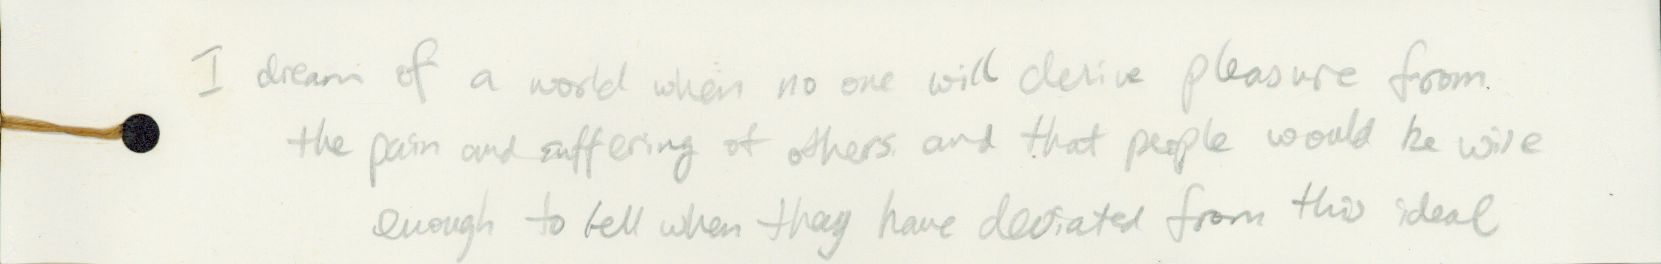 I dream of a world when no one will derive pleasure from
the pain and suffering of others. and that people would be wise
enough to tell when they have deviated from this ideal